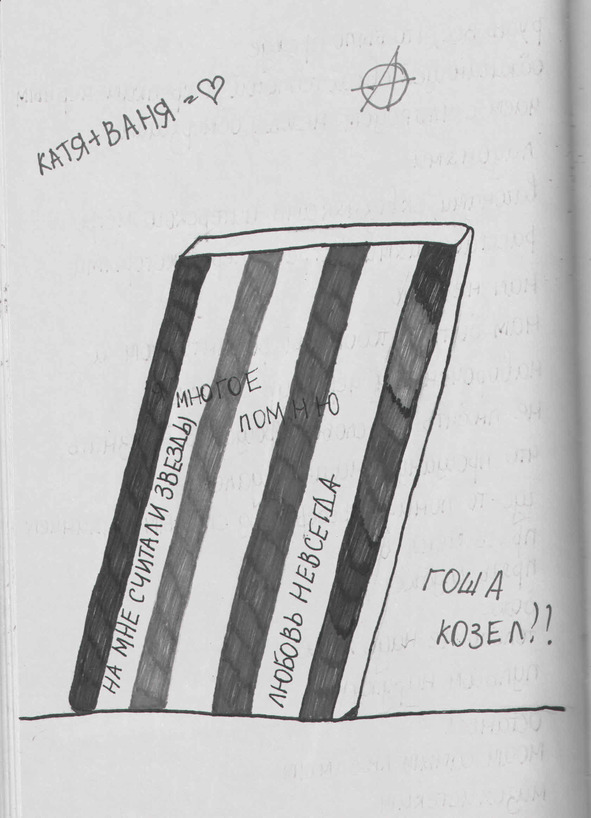 КАТЯ+ВАНЯ=♡
Я МНОГОЕ
ПОМНЮ
НА МНЕ СЧИТАЛИ ЗВЕЗДЫ
ЛЮБОВЬ НЕВСЕГДА
ГОША
КОЗЕЛ!!